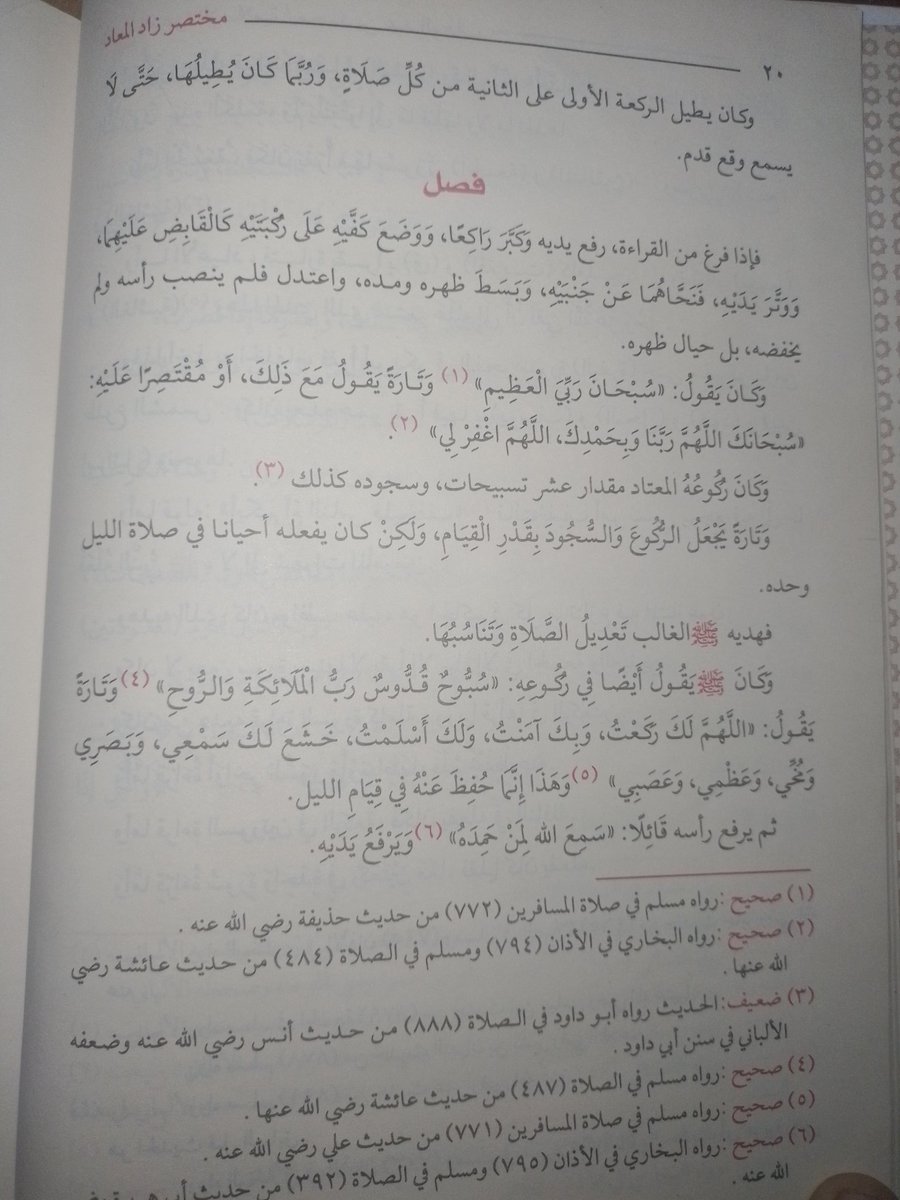 مختصر زاد المعاد
٢٠
وكان يطيل الركعة الأولى على الثانية من كُلِّ صَلَاةٍ، وَرُبَّمَا كَانَ يُطِيلُهَا، حَتَّى لَا
يسمع وقع قدم.
فصل
فإذا فرغ من القراءة، رفع يديه وَكَبَّرَ رَاكِعًا، وَوَضَعَ كَفَّيْهِ عَلَى رُكْبَتَيْهِ كَالْقَابِضِ عَلَيْهِمَا،
وَوَتَّرَ يَدَيْهِ، فَنَحَّاهُمَا عَنْ جَنْبَيْهِ، وَبَسَطَ ظهره ومده، واعتدل فلم ينصب رأسه ولم
يخفضه، بل حيال ظهره.
وَكَانَ يَقُولُ: «سُبْحَانَ رَبِّيَ الْعَظِيمِ» (١) وَتَارَةً يَقُولُ مَعَ ذَلِكَ، أَوْ مُقْتَصِرًا عَلَيْهِ:
«سُبْحَانَكَ اللَّهُمَّ رَبَّنَا وَبِحَمْدِكَ، اللَّهُمَّ اغْفِرْ لِي» (٢).
وَكَانَ رُكُوعُهُ المعتاد مقدار عشر تسبيحات، وسجوده كذلك (٣).
وَتَارَةً يَجْعَلُ الرُّكُوعَ وَالسُّجُودَ بِقَدْرِ الْقِيَامِ، وَلَكِنْ كان يفعله أحيانا في صلاة الليل
وحده.
فهديه ﷺ الغالب تَعْدِيلُ الصَّلَاةِ وَتَنَاسُبُهَا.
وَكَانَ ﷺ يَقُولُ أَيْضًا فِي رُكُوعِهِ: «سُبُّوحٌ قُدُّوسٌ رَبُّ الْمَلَائِكَةِ وَالرُّوحِ» (٤) وَتَارَةً
يَقُولُ: «اللَّهُمَّ لَكَ رَكَعْتُ، وَبِكَ آمَنْتُ، وَلَكَ أَسْلَمْتُ، خَشَعَ لَكَ سَمْعِي، وَبَصَرِي
وَمُخِّي، وَعَظْمِي، وَعَصَبِي» (٥) وَهَذَا إِنَّمَا حُفِظَ عَنْهُ فِي قِيَامِ الليل.
ثم يرفع رأسه قَائِلًا: «سَمِعَ الله لِمَنْ حَمِدَهُ» (٦) وَيَرْفَعُ يَدَيْهِ.
(١) صحيح :رواه مسلم في صلاة المسافرين (٧٧٢) من حديث حذيفة رضي الله عنه .
(٢) صحيح :رواه البخاري في الأذان (٧٩٤) ومسلم في الصلاة (٤٨٤) من حديث عائشة رضي
الله عنها .
(٣) ضعيف: الحديث رواه أبو داود في الصلاة (٨٨٨) من حديث أنس رضي الله عنه وضعفه
الألباني في سنن أبي داود .
(٤) صحيح :رواه مسلم في الصلاة (٤٨٧) من حديث عائشة رضي الله عنها .
(٥) صحيح: رواه مسلم في صلاة المسافرين (٧٧١) من حديث علي رضي الله عنه .
(٦) صحيح :رواه البخاري في الأذان (٧٩٥) ومسلم في الصلاة (٣٩٢) من حديث
الله عنه .